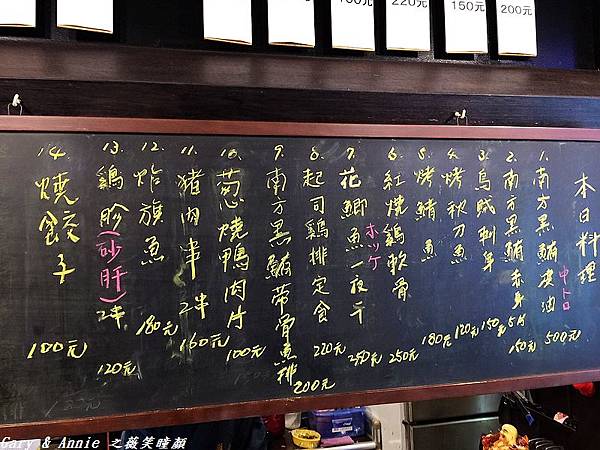 220元
150元
200元
本日料理
1. 南方黑鮪腹油 中トロ 500元
2. 南方黑鮪赤身 5片 150元
3. 烏賊刺身 150元
4. 烤秋刀魚 120元
5. 烤鯖魚 180元
6. 紅燒鷄軟骨 250元
7. 花鯽魚一夜干 ホッケ 250元
8. 起司鷄排定食 220元
9. 南方黑鮪帶骨魚排 200元
10. 葱燒鴨肉片 100元
11. 猪肉串 2串 160元
12. 炸旗魚 180元
13. 鷄胗(砂肝) 2串 120元
14. 燒餃子 100元
Gary & Annie 之薇笑瞳顏